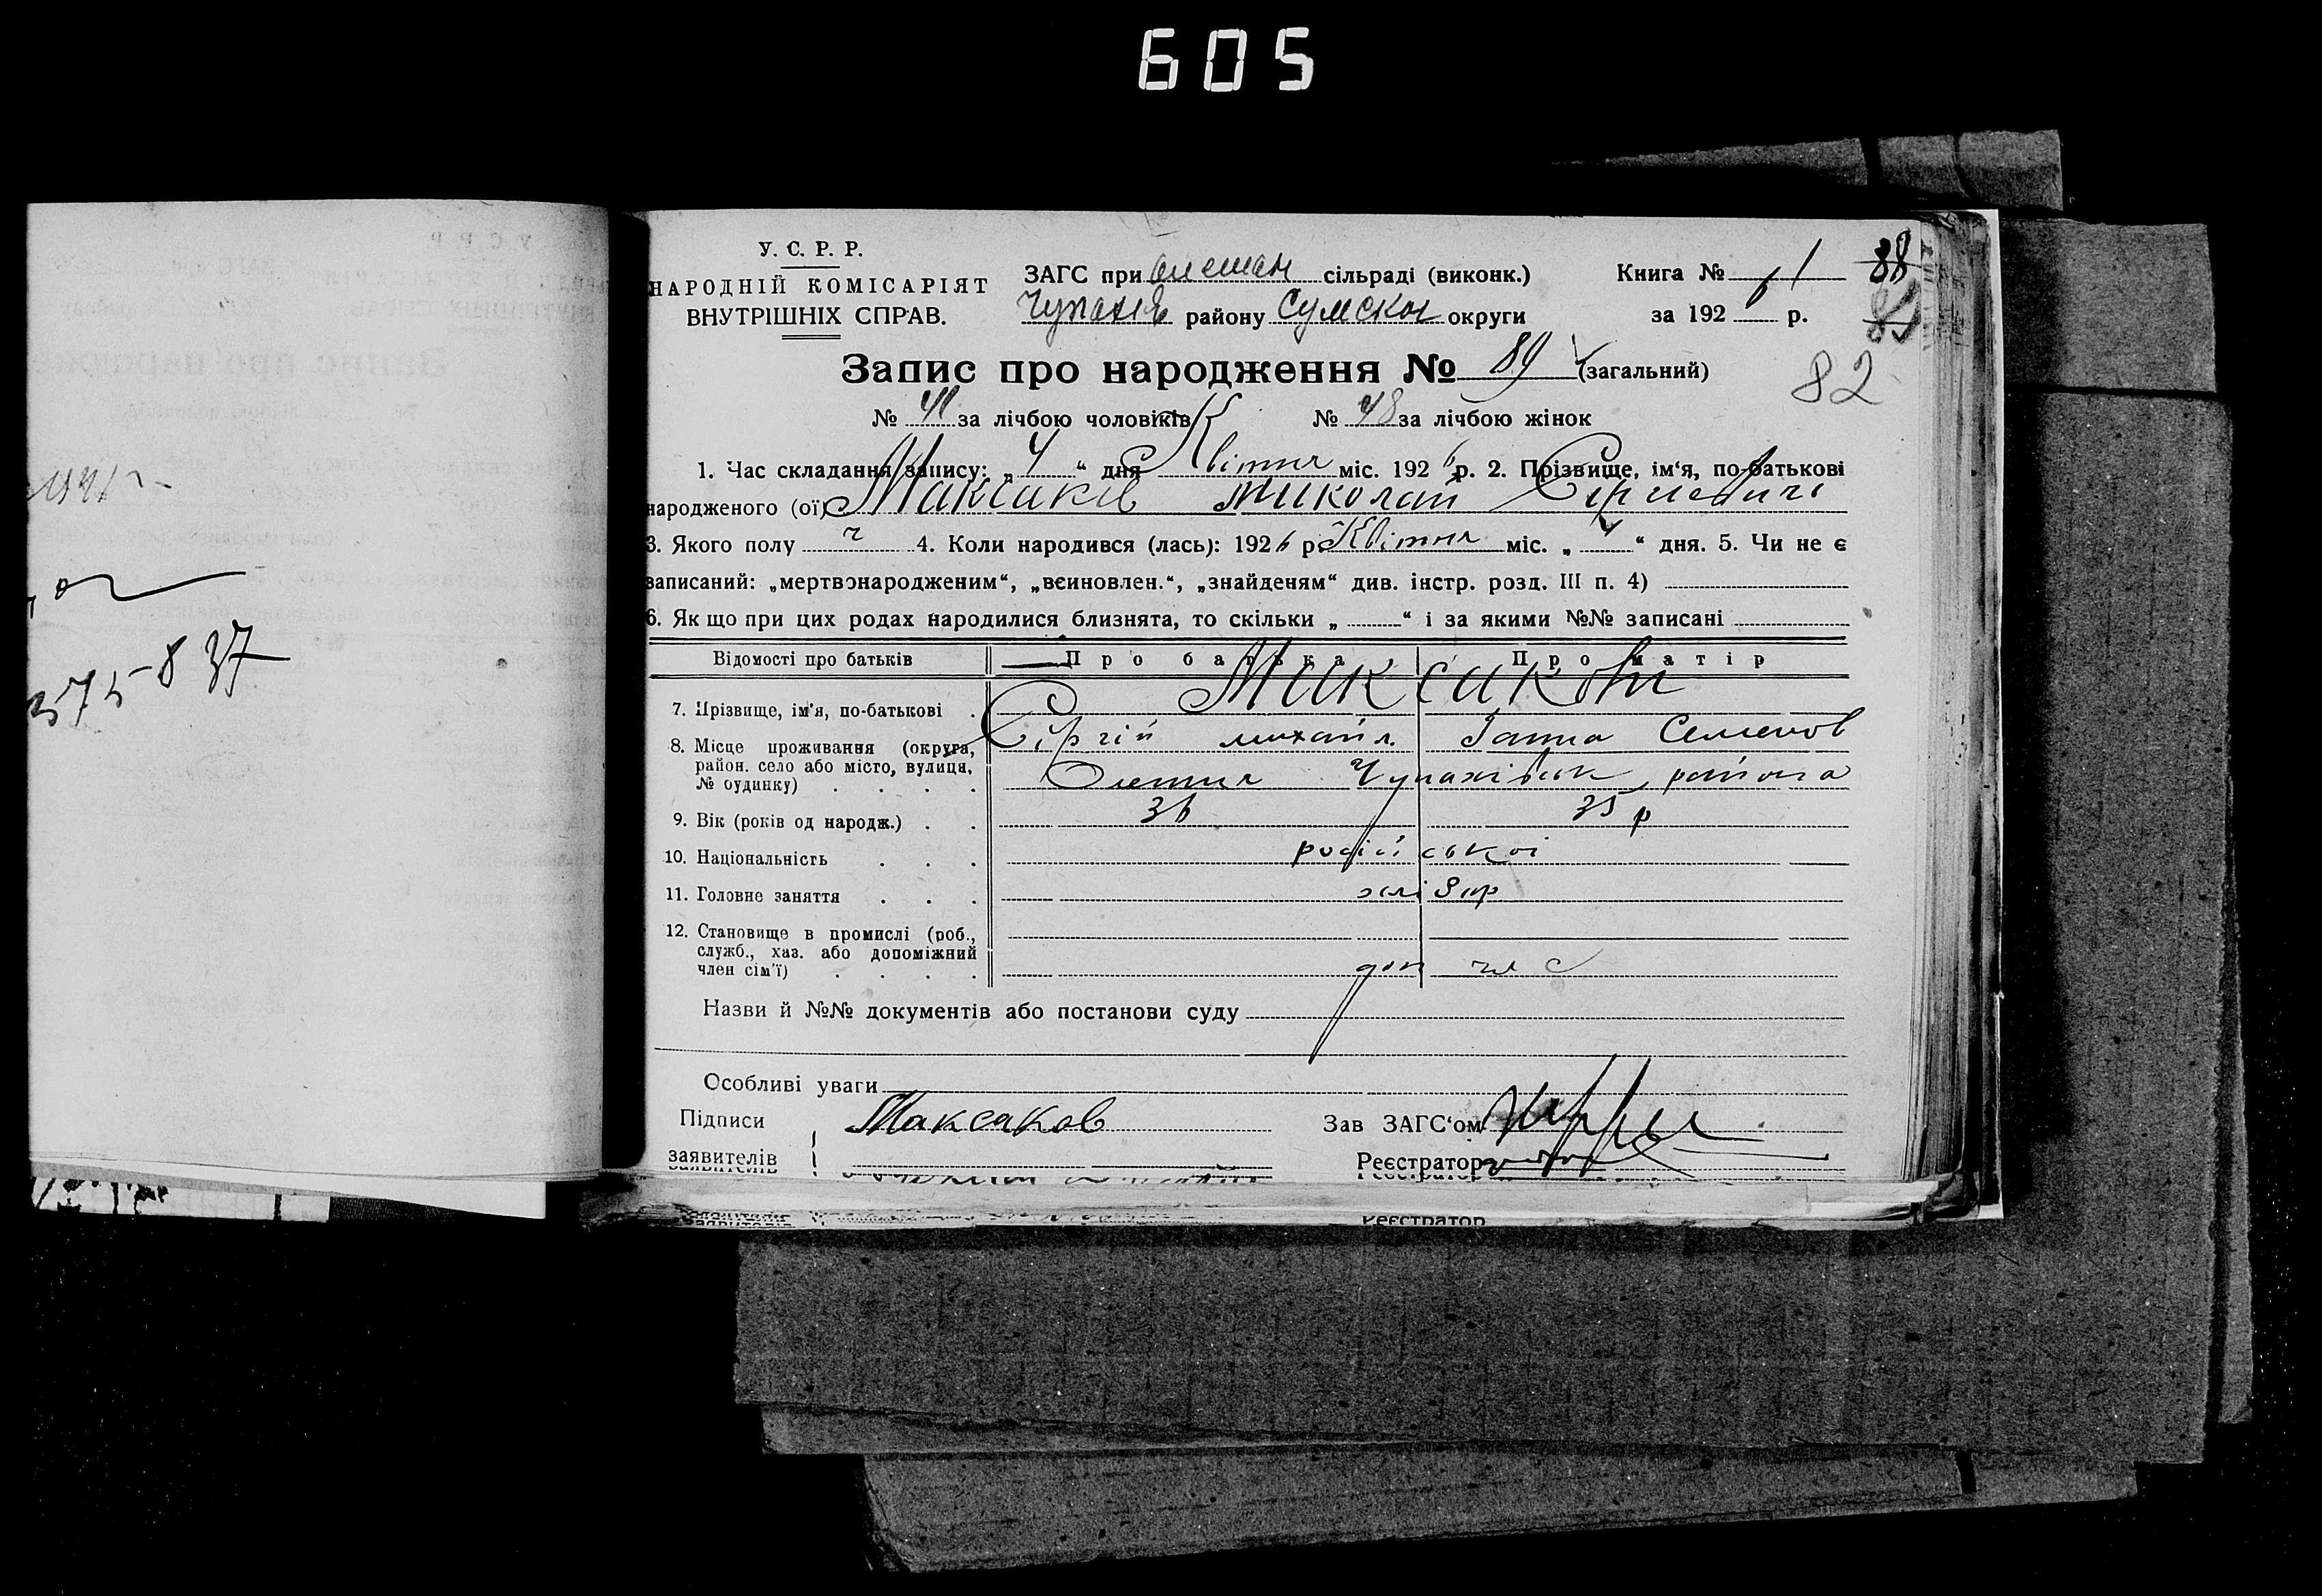 605
У. С. Р. Р.
НАРОДНІЙ КОМІСАРІЯТ
ВНУТРІШНІХ СПРАВ.
ЗАГС при олешан сільраді (виконк.)
Чупахів району Сумскої округи
Книга № 1
за 192 6 р.
88
82
Запис про народження № 89 (загальний)
№ 41 за лічбою чоловіків № 48 за лічбою жінок
1. Час складання запису: „ 4 “ дня Квітня міс. 192 6 р. 2. Прізвище, ім‘я, по-батькові
народженого (ої) Максаков Миколай Сергиевичь
3. Якого полу ч 4. Коли народився (лась): 192 6 р. Квітня міс. „ 4 “ дня. 5. Чи не є
записаний: „мертвонародженим“, „всиновлен.“, „знайденям“ див. інстр. розд. III п. 4)
6. Як що при цих родах народилися близнята, то скільки „ “ і за якими №№ записані
Відомості про батьків Про батька Про матір
Максакови
7. Прізвище, ім'я, по-батькові
Сергій михайл. Ганна Семенов
8. Місце проживання (округа,
район. село або місто, вулиця,
№ будинку)
Олешня Чупахівськ района
9. Вік (років од народж.) 36 35 р
10. Національність російської
11. Головне заняття хлібор
12. Становище в промислі (роб.,
служб., хаз. або допоміжний
член сім'ї)
доп чл с
Назви й №№ документів або постанови суду
Особливі уваги
Підписи Максаков Зав ЗАГС‘ом
заявителів Реєстратор
Реєстратор
375-837